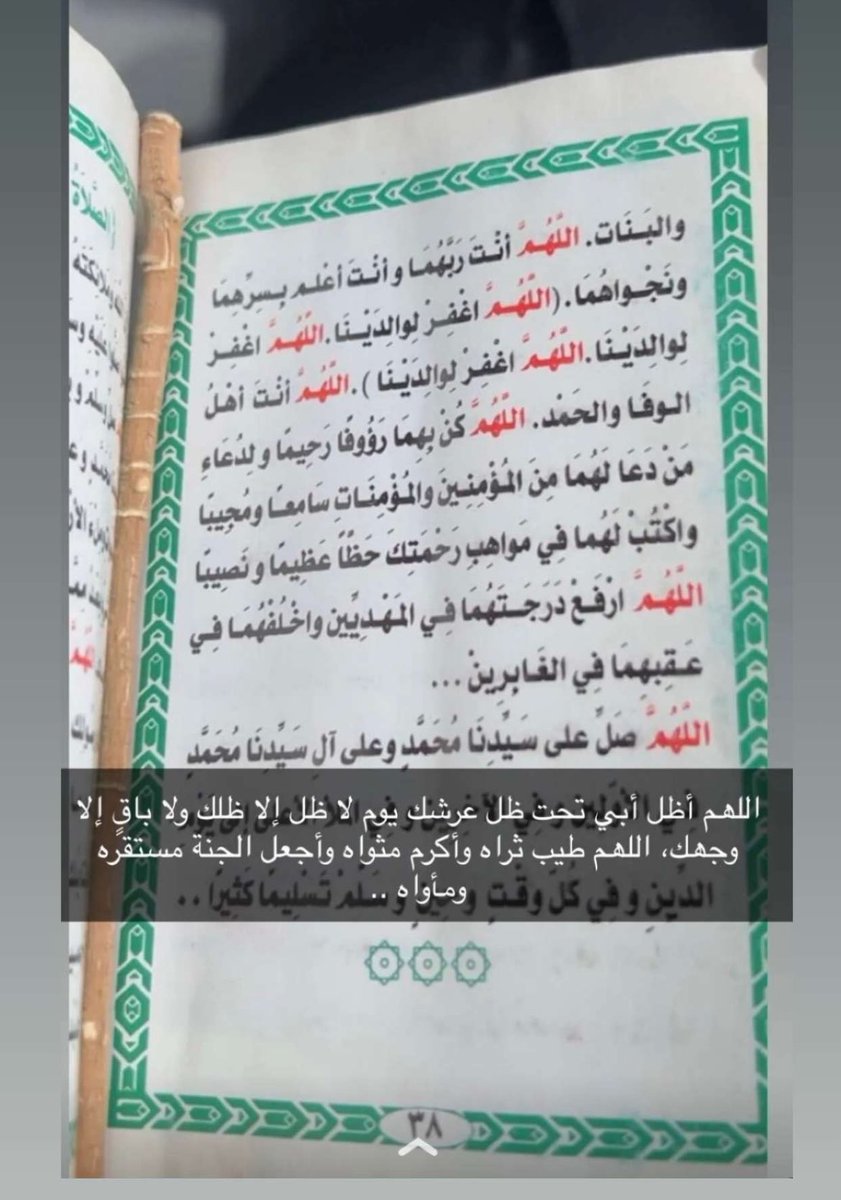 والبَنَات. اللَّهُمَّ أنْتَ رَبُّهُمَا وأنْتَ أعْلم بِسِرِّهِمَا
ونَجْواهُمَا. (اللَّهُمَّ اغْفِرْ لِوالِدَيْنَا. اللَّهُمَّ اغْفِرْ
لِوالِدَيْنَا. اللَّهُمَّ اغْفِرْ لِوالِدَيْنَا). اللَّهُمَّ أنْتَ أهْلُ
الوفَا والحَمْد. اللَّهُمَّ كُنْ بِهِمَا رَؤُوفًا رَحِيمًا ولِدُعَاءِ
مَنْ دَعَا لَهُمَا مِنَ المُؤْمِنِينَ والمُؤْمِنَاتِ سَامِعًا ومُجِيبًا
واكْتُبْ لَهُما فِي مَواهِبِ رَحْمَتِكَ حَظًّا عَظِيمًا ونَصِيبًا
اللَّهُمَّ ارْفَعْ دَرَجَتَهُمَا فِي المَهْدِيِّين واخْلُفْهُمَا فِي
عَقِبِهِمَا فِي الغَابِرِينْ ...
اللَّهُمَّ صَلِّ على سَيِّدِنَا مُحَمَّدٍ وعلى آلِ سَيِّدِنَا مُحَمَّدٍ
اللهم أظل أبي تحت ظل عرشك يوم لا ظل إلا ظلك ولا باقٍ إلا
وجهك، اللهم طيب ثراه وأكرم مثواه وأجعل الجنة مستقره
ومأواه ..
الدِّينِ وفِي كُلِّ وقْتٍ وسَلِّمْ تَسْلِيمًا كَثِيرًا ..
٣٨